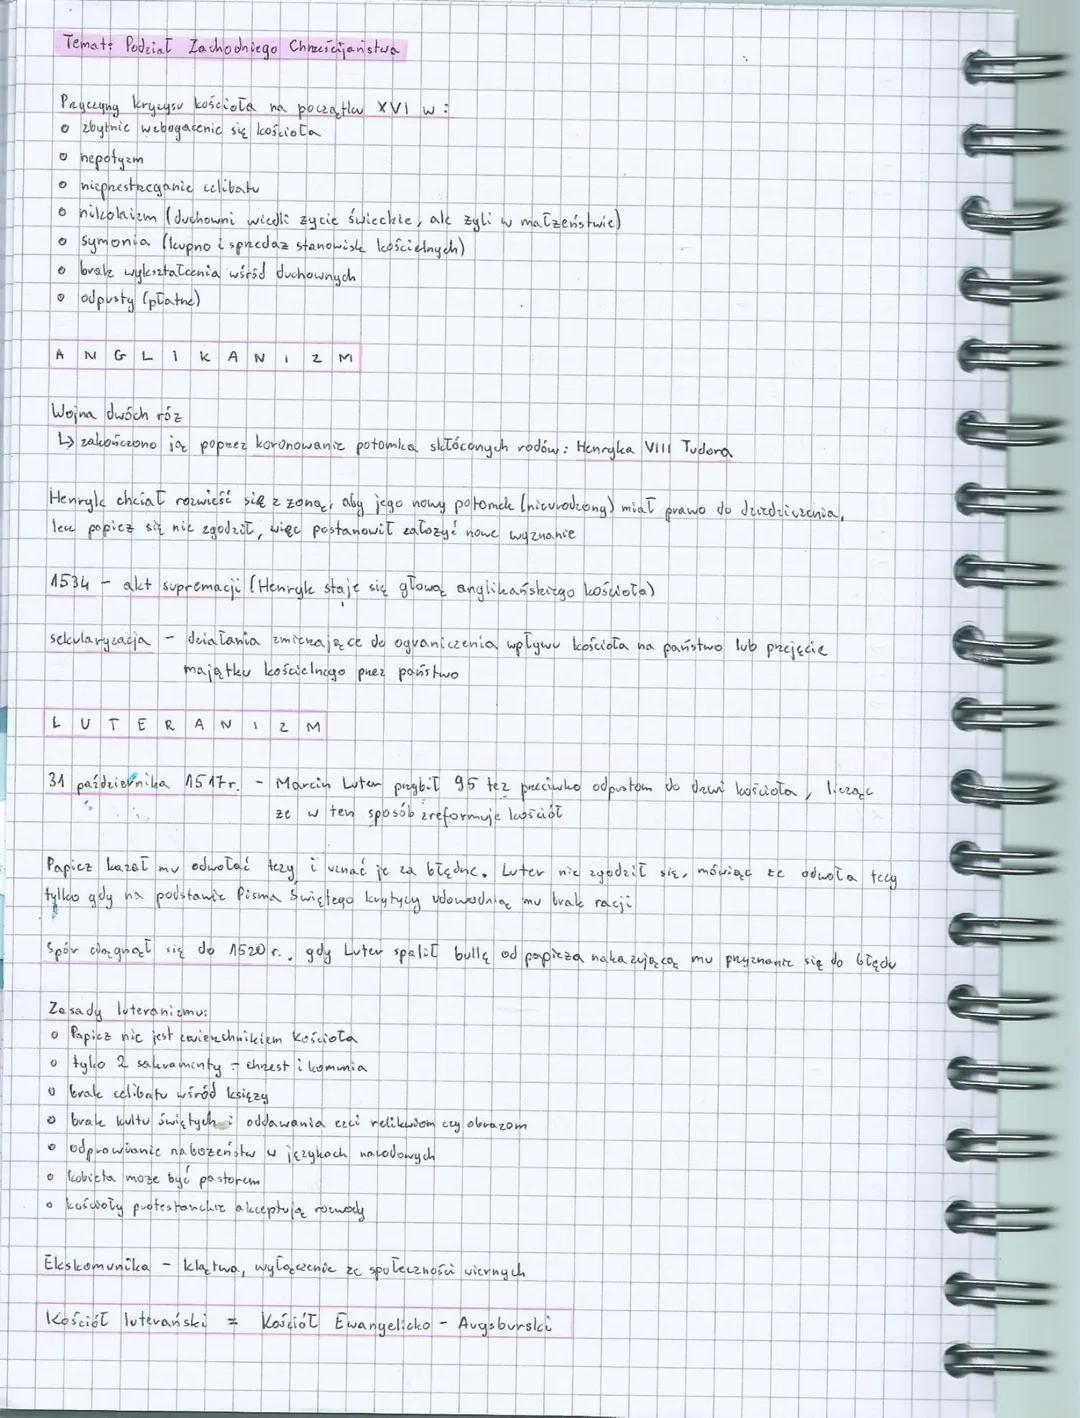 Temat: Podział Zachodniego Chrześcijaństwa
Przyczyny kryzysu kościoła na początku XVI w:
o zbytnie wzbogacenie się kościoła
o nepotyzm
o nieprzestrzeganie celibatu
o nikolaizm (duchowni wiedli życie świeckie, ale żyli w małżeństwie)
o symonia (kupno i sprzedaż stanowisk kościelnych)
o brak wykształcenia wśród duchownych
o odpusty (płatne)
ANGLIKANIZM
Wojna dwóch róż
↳ zakończono ją poprzez koronowanie potomka skłóconych rodów: Henryka VIII Tudora
Henryk chciał rozwieść się z żoną, aby jego nowy potomek (nieurodzony) miał prawo do dziedziczenia,
lecz papież się nie zgodził, więc postanowił założyć nowe wyznanie
1534 - akt supremacji (Henryk staje się głową anglikańskiego kościoła)
sekularyzacja - działania zmierzające do ograniczenia wpływu kościoła na państwo lub przejęcie
majątku kościelnego przez państwo
LUTERANIZM
31 października 1517r. - Marcin Luter przybił 95 tez przeciwko odpustom do drzwi kościoła, licząc
że w ten sposób zreformuje kościół
Papież kazał mu odwołać tezy i uznać je za błędne. Luter nie zgodził się, mówiąc że odwoła tezy
tylko gdy na podstawie Pisma Świętego krytycy udowodnią mu brak racji
Spór ciągnął się do 1520 r., gdy Luter spalił bullę od papieża nakazującą mu przyznanie się do błędu
Zasady luteranizmu:
o Papież nie jest zwierzchnikiem Kościoła
o tylko 2 sakramenty - chrzest i komunia
o brak celibatu wśród księży
o brak kultu świętych i oddawania czci relikwiom czy obrazom
o odprawianie nabożeństw w językach narodowych
o kobieta może być pastorem
o kościoły protestanckie akceptują rozwody
Ekskomunika - klątwa, wyłączenie ze społeczności wiernych
Kościół luterański = Kościół Ewangelicko - Augsburski